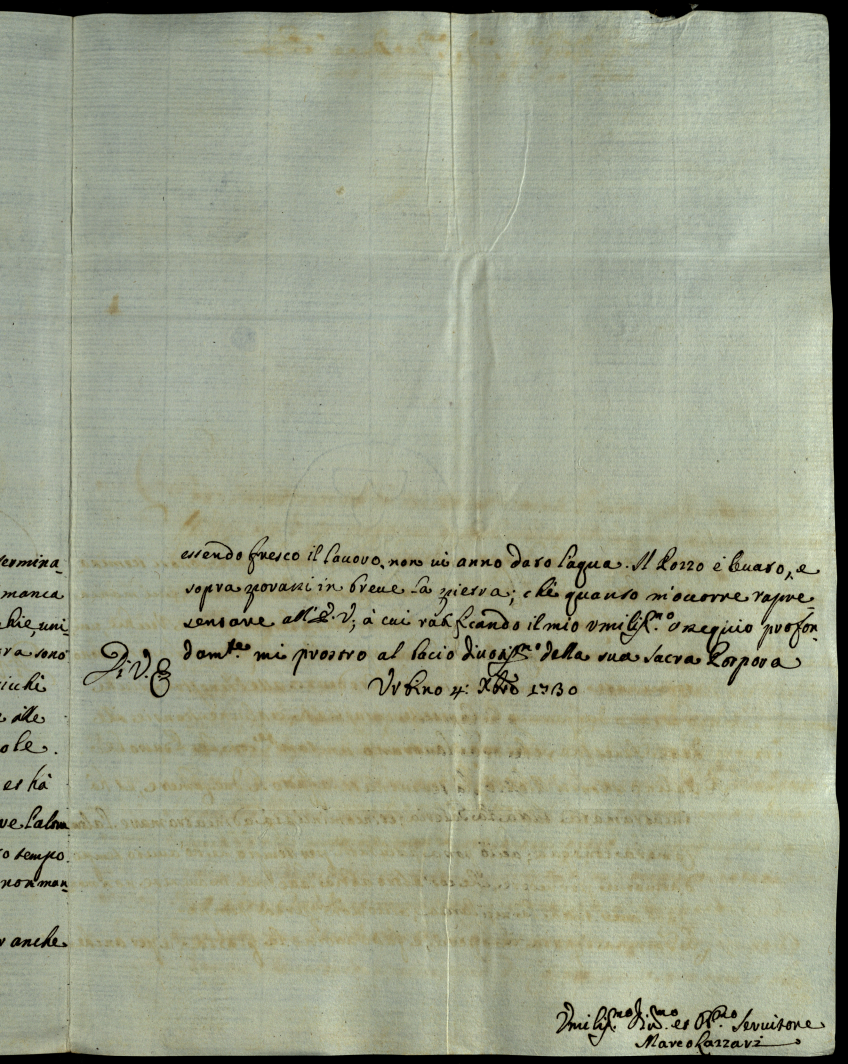 termina-
manca
chie, uni-
ra sono
ichi
e alle
ole.
et hà
ve l'altra
o tempo
non man-
anche
essendo fresco il lavoro, non vi anno dato l'aqua. Il Pozzo è levato, e
sopra in breve la pietra; chè quanto m'occorre rappre
sentare all'E. V; à cui ratificando il mio umiliss.mo ossequio profon-
dam.te mi prostro al bacio divotiss.mo della sua Sacra Porpora
Di V. E
Urbino 4: Xbre 1730
Umiliss.mo Div.mo et Obl.mo Servitore
Marco Lazzari